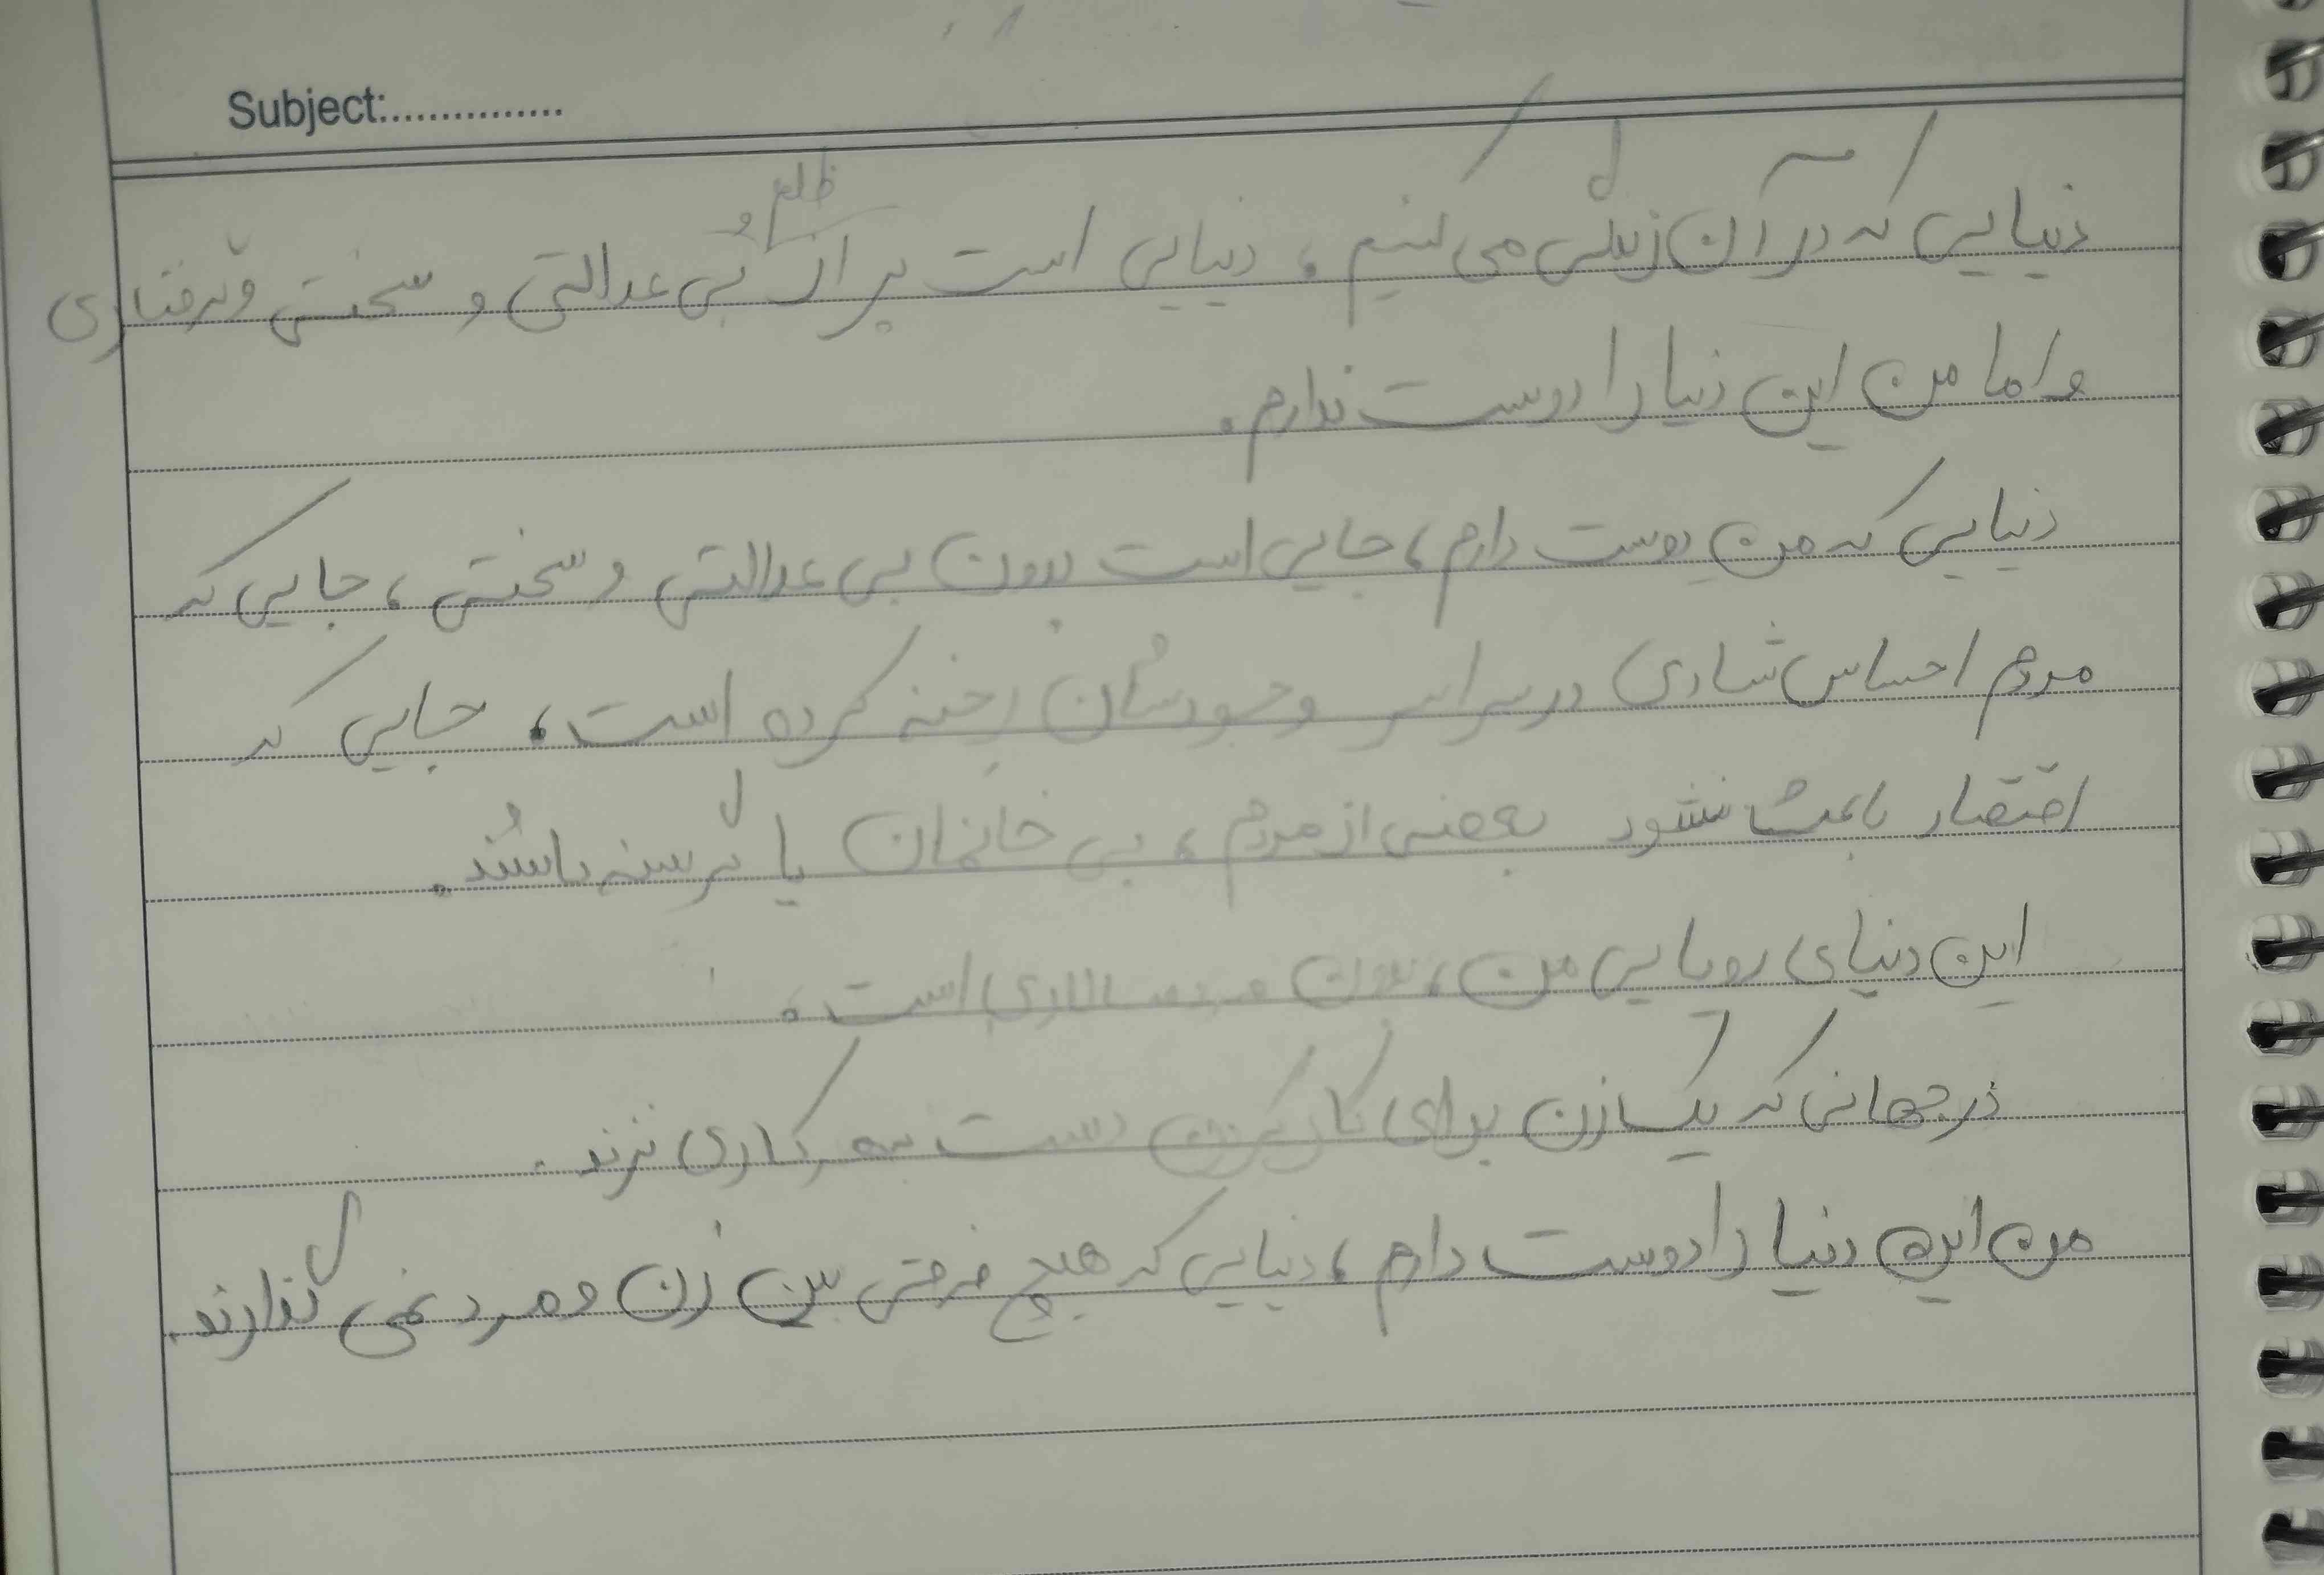 Subject:...............
دنیایی که در آن زندگی می کنیم، دنیایی است پر از ظلم و بی عدالتی و سختی و گرفتاری
و اما من این دنیا را دوست ندارم.
دنیایی که من دوست دارم، جایی است بدون بی عدالتی و سختی، جایی که
مردم احساس شادی در سراسر وجودشان رخنه کرده است، جایی که
اقتصاد باعث نشود بعضی از مردم، بی خانمان یا گرسنه باشند.
این دنیای رویایی من، بدون مردسالاری است،
در جهانی که یک زن برای کار کردن دست به هر کاری نزند.
من این دنیا را دوست دارم، دنیایی که هیچ فرقی بین زن و مرد نمی گذارند.